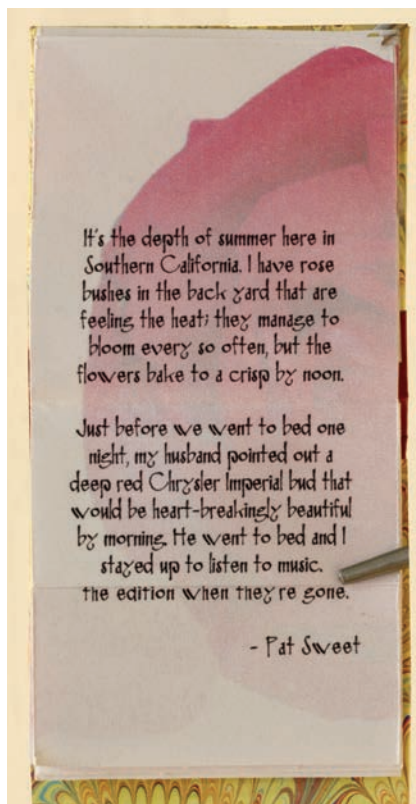 It's the depth of summer here in
Southern California. I have rose
bushes in the back yard that are
feeling the heat; they manage to
bloom every so often, but the
flowers bake to a crisp by noon.
Just before we went to bed one
night, my husband pointed out a
deep red Chrysler Imperial bud that
would be heart-breakingly beautiful
by morning. He went to bed and I
stayed up to listen to music.
the edition when they're gone.
- Pat Sweet